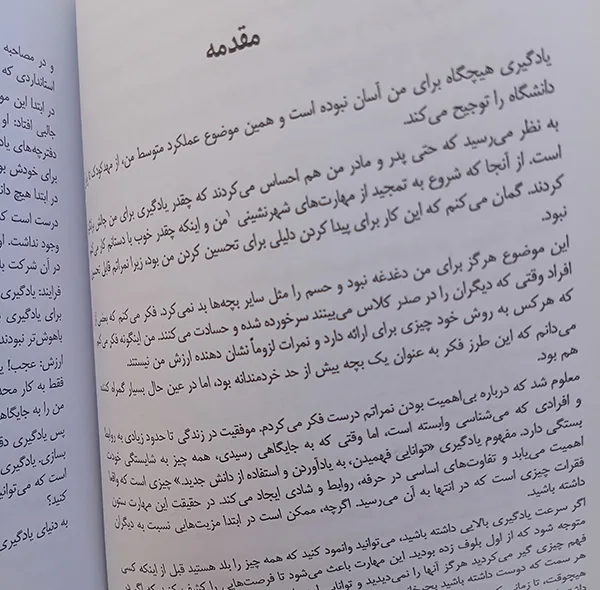 مقدمه
یادگیری هیچگاه برای من آسان نبوده است و همین موضوع عملکرد متوسط من، از مهدکودک تا
دانشگاه را توجیح می‌کند.
به نظر می‌رسید که حتی پدر و مادر من هم احساس می‌کردند که چقدر یادگیری برای من چالش
است. از آنجا که شروع به تمجید از مهارت‌های شهرنشینی ۱ من و اینکه چقدر خوب با دستانم کار می
کردند. گمان می‌کنم که این کار برای پیدا کردن دلیلی برای تحسین کردن من بود، زیرا نمراتم قابل
نبود.
این موضوع هرگز برای من دغدغه نبود و حسم را مثل سایر بچه‌ها بد نمی‌کرد. فکر می‌کنم که بعضی از
افراد وقتی که دیگران را در صدر کلاس می‌بینند سرخورده شده و حسادت می‌کنند. من اینگونه فکر می
که هرکس به روش خود چیزی برای ارائه دارد و نمرات لزوماً نشان دهنده ارزش من نیستند.
می‌دانم که این طرز فکر به عنوان یک بچه بیش از حد خردمندانه بود، اما در عین حال بسیار گمراه کننده
هم بود.
معلوم شد که درباره بی‌اهمیت بودن نمراتم درست فکر می‌کردم. موفقیت در زندگی تا حدود زیادی به روابط
و افرادی که می‌شناسی وابسته است، اما وقتی که به جایگاهی رسیدی، همه چیز به شایستگی خودت
بستگی دارد. مفهوم یادگیری «توانایی فهمیدن، به یادآوردن و استفاده از دانش جدید.» چیزی است که واقعا
اهمیت می‌یابد و تفاوت‌های اساسی در حرفه، روابط و شادی ایجاد می‌کند. در حقیقت این مهارت ستون
فقرات چیزی است که در انتها به آن می‌رسید. اگرچه، ممکن است در ابتدا مزیت‌هایی نسبت به دیگران
داشته باشید.
اگر سرعت یادگیری بالایی داشته باشید، می‌توانید وانمود کنید که همه چیز را بلد هستید قبل از اینکه کسی
متوجه شود که از اول بلوف زده بودید. این مهارت باعث می‌شود تا فرصت‌هایی را کشف کنید که اگر
فهم چیزی گیر می‌کردید هرگز آنها را نمی‌دیدید و توانایی
هر سمت که دوست داشته باشید بچرخانید
هیچوقت، تا زمانی که
و در مصاحبه
استانداردی که
در ابتدا این مو
جالبی افتاد: او
دفترچه‌های یاد
برای خودش بو
در ابتدا هیچ دا
درست است که
وجود نداشت. او
در آن شرکت با
فرایند: یادگیری
برای یادگیری
باهوش‌تر نبودند
ارزش: عجب! ی
فقط به کار محد
من را به جایگاه
پس یادگیری دق
بسازی. یادگیری
است که می‌توانی
کنید؟
به دنیای یادگیری